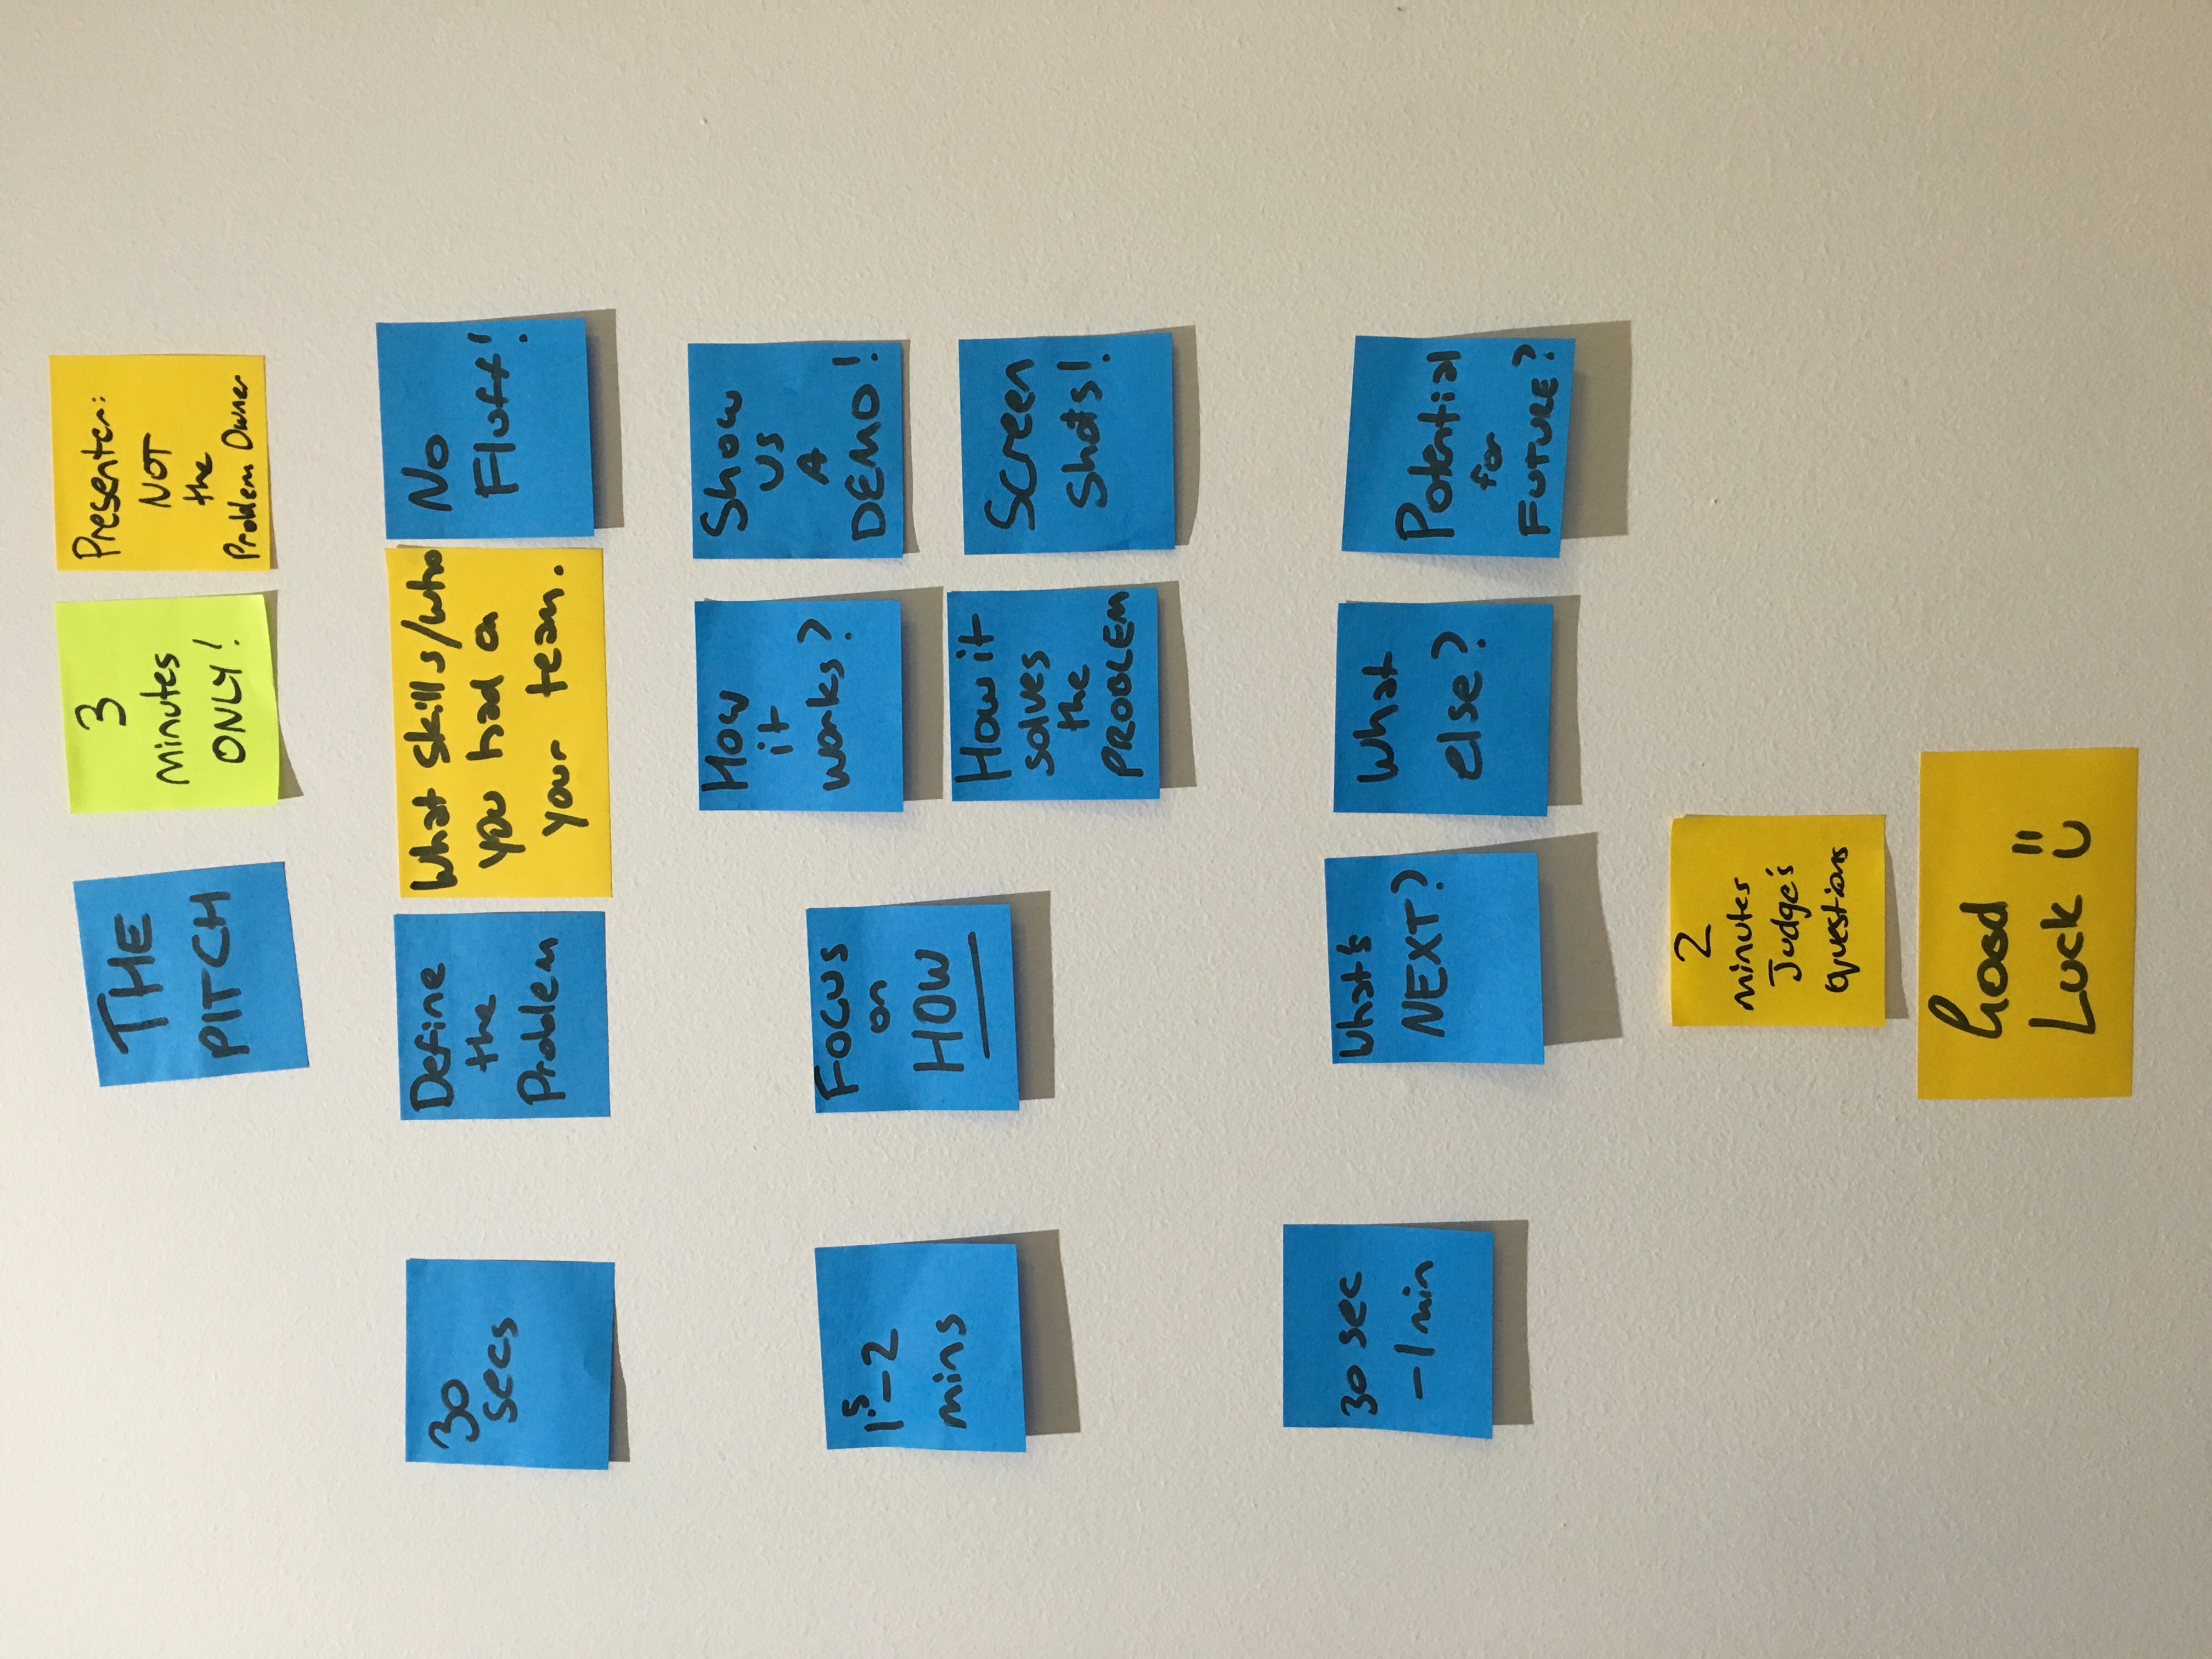 THE
PITCH
3
minutes
ONLY!
Presenter:
NOT
the
Problem Owner
30
secs
Define
the
Problem
What skills/who
you had on
your team.
No
Fluff!
1.5-2
mins
Focus
on
HOW
How
it
works?
Show
us
A
DEMO!
How it
solves
the
PROBLEM
Screen
Shots!
30 sec
-1 min
What's
NEXT?
What
else?
Potential
for
FUTURE?
2
minutes
Judge's
questions
Good
Luck